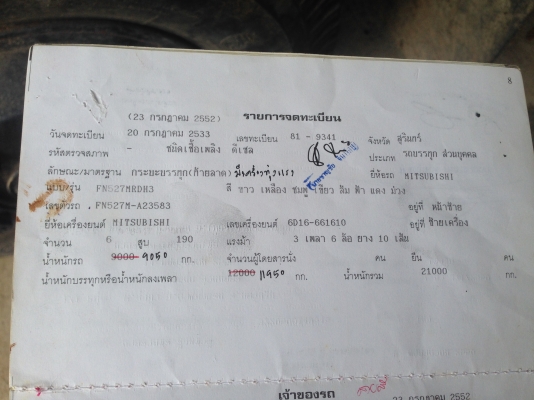 8
(23 กรกฎาคม 2552) รายการจดทะเบียน
วันจดทะเบียน 20 กรกฎาคม 2533 เลขทะเบียน 81 - 9341 จังหวัด สุรินทร์
รหัสตรวจสภาพ - ชนิดเชื้อเพลิง ดีเซล ประเภท รถบรรทุก ส่วนบุคคล
ลักษณะ/มาตรฐาน กระบะบรรทุก(ท้ายลาด) ยี่ห้อรถ MITSUBISHI
แบบ/รุ่น FN527MRDH3 สี ขาว เหลือง ชมพู เขียว ส้ม ฟ้า แดง ม่วง
เลขตัวรถ . FN527M-A23583 อยู่ที่ หน้าซ้าย
ยี่ห้อเครื่องยนต์ MITSUBISHI เลขเครื่องยนต์ 6D16-661610 อยู่ที่ ซ้ายเครื่อง
จำนวน 6 สูบ 190 แรงม้า 3 เพลา 6 ล้อ ยาง 10 เส้น
น้ำหนักรถ 9000 9050 กก. จำนวนผู้โดยสารนั่ง คน ยืน คน
น้ำหนักบรรทุกหรือน้ำหนักลงเพลา 12000 11950 กก. น้ำหนักรวม 21000 กก.
เจ้าของรถ 23 กรกฎาคม 2552